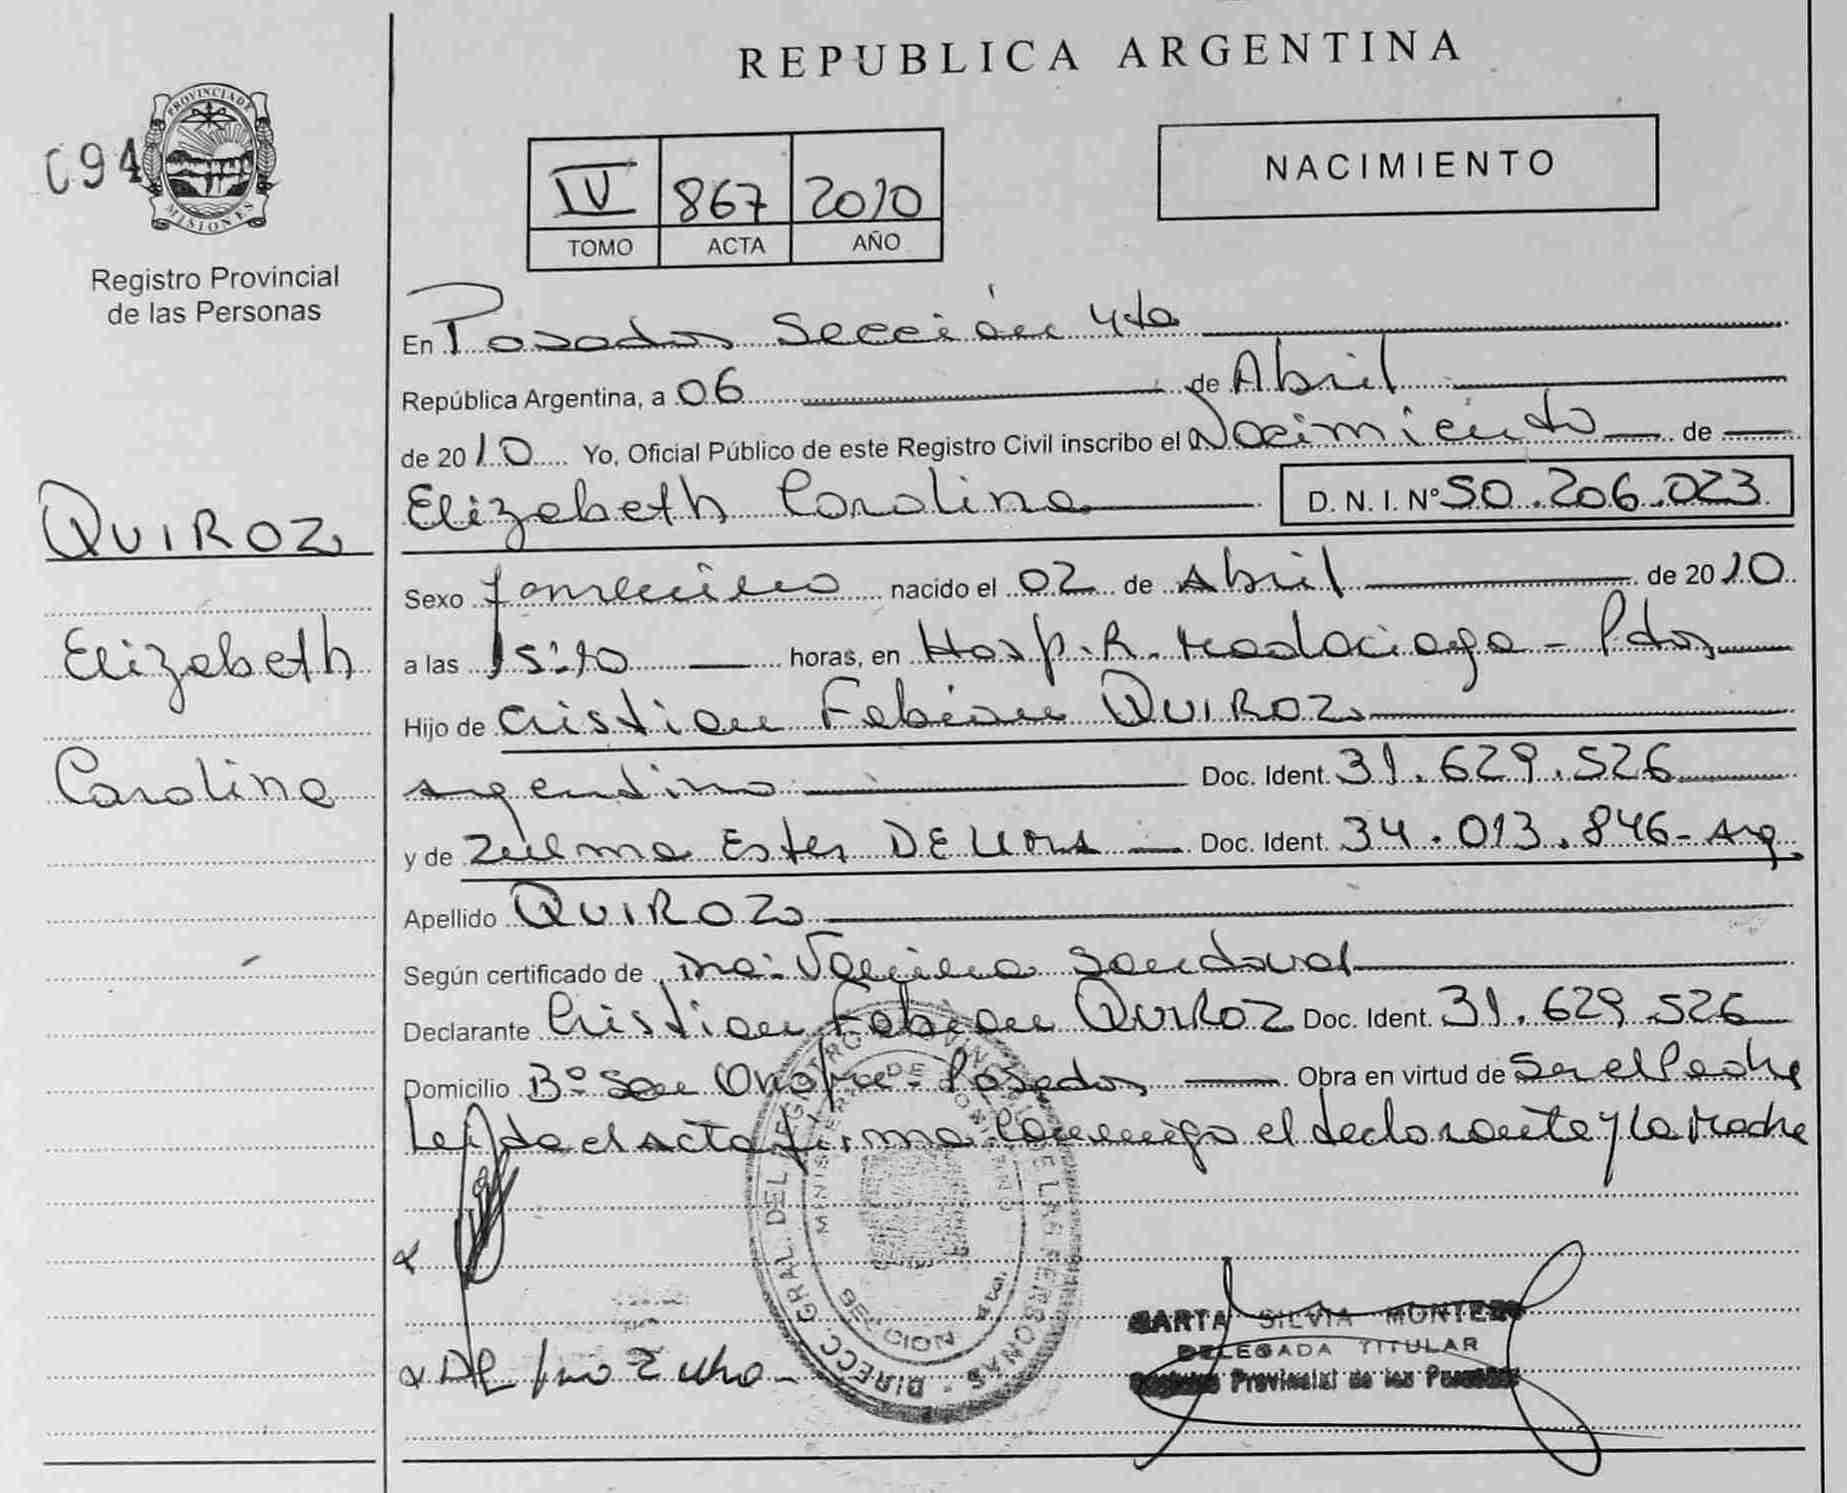 REPUBLICA ARGENTINA
094
PROVINCIA DE
MISIONES
Registro Provincial
de las Personas
IV 867 2010
TOMO ACTA AÑO
NACIMIENTO
En Posadas Sección 4ta
República Argentina, a 06 de Abril
de 2010 Yo, Oficial Público de este Registro Civil inscribo el Nacimiento de
QUIROZ
Elizabeth Carolina D. N. I. Nº 50.206.023
Sexo femenino nacido el 02 de Abril de 2010
Elizabeth
a las 15:10 horas, en Hosp. R. Madaciaga - Pdas
Hijo de Cristian Fabián QUIROZ
Carolina
Argentino Doc. Ident. 31.629.526
y de Zulma Ester Doc. Ident. 34.013.846 - Arg.
Apellido QUIROZ
Según certificado de Sandoval
Declarante Cristian Fabián QUIROZ Doc. Ident. 31.629.526
Domicilio Bº San Onofre - Posadas Obra en virtud de Ser el Padre
Leída el acta firma conmigo el declarante y la Madre
DIRECC. GRAL. DEL REGISTRO PROVINCIAL DE LAS PERSONAS
MINISTERIO DE
SILVIA
DELEGADA TITULAR
Provincial de las Personas